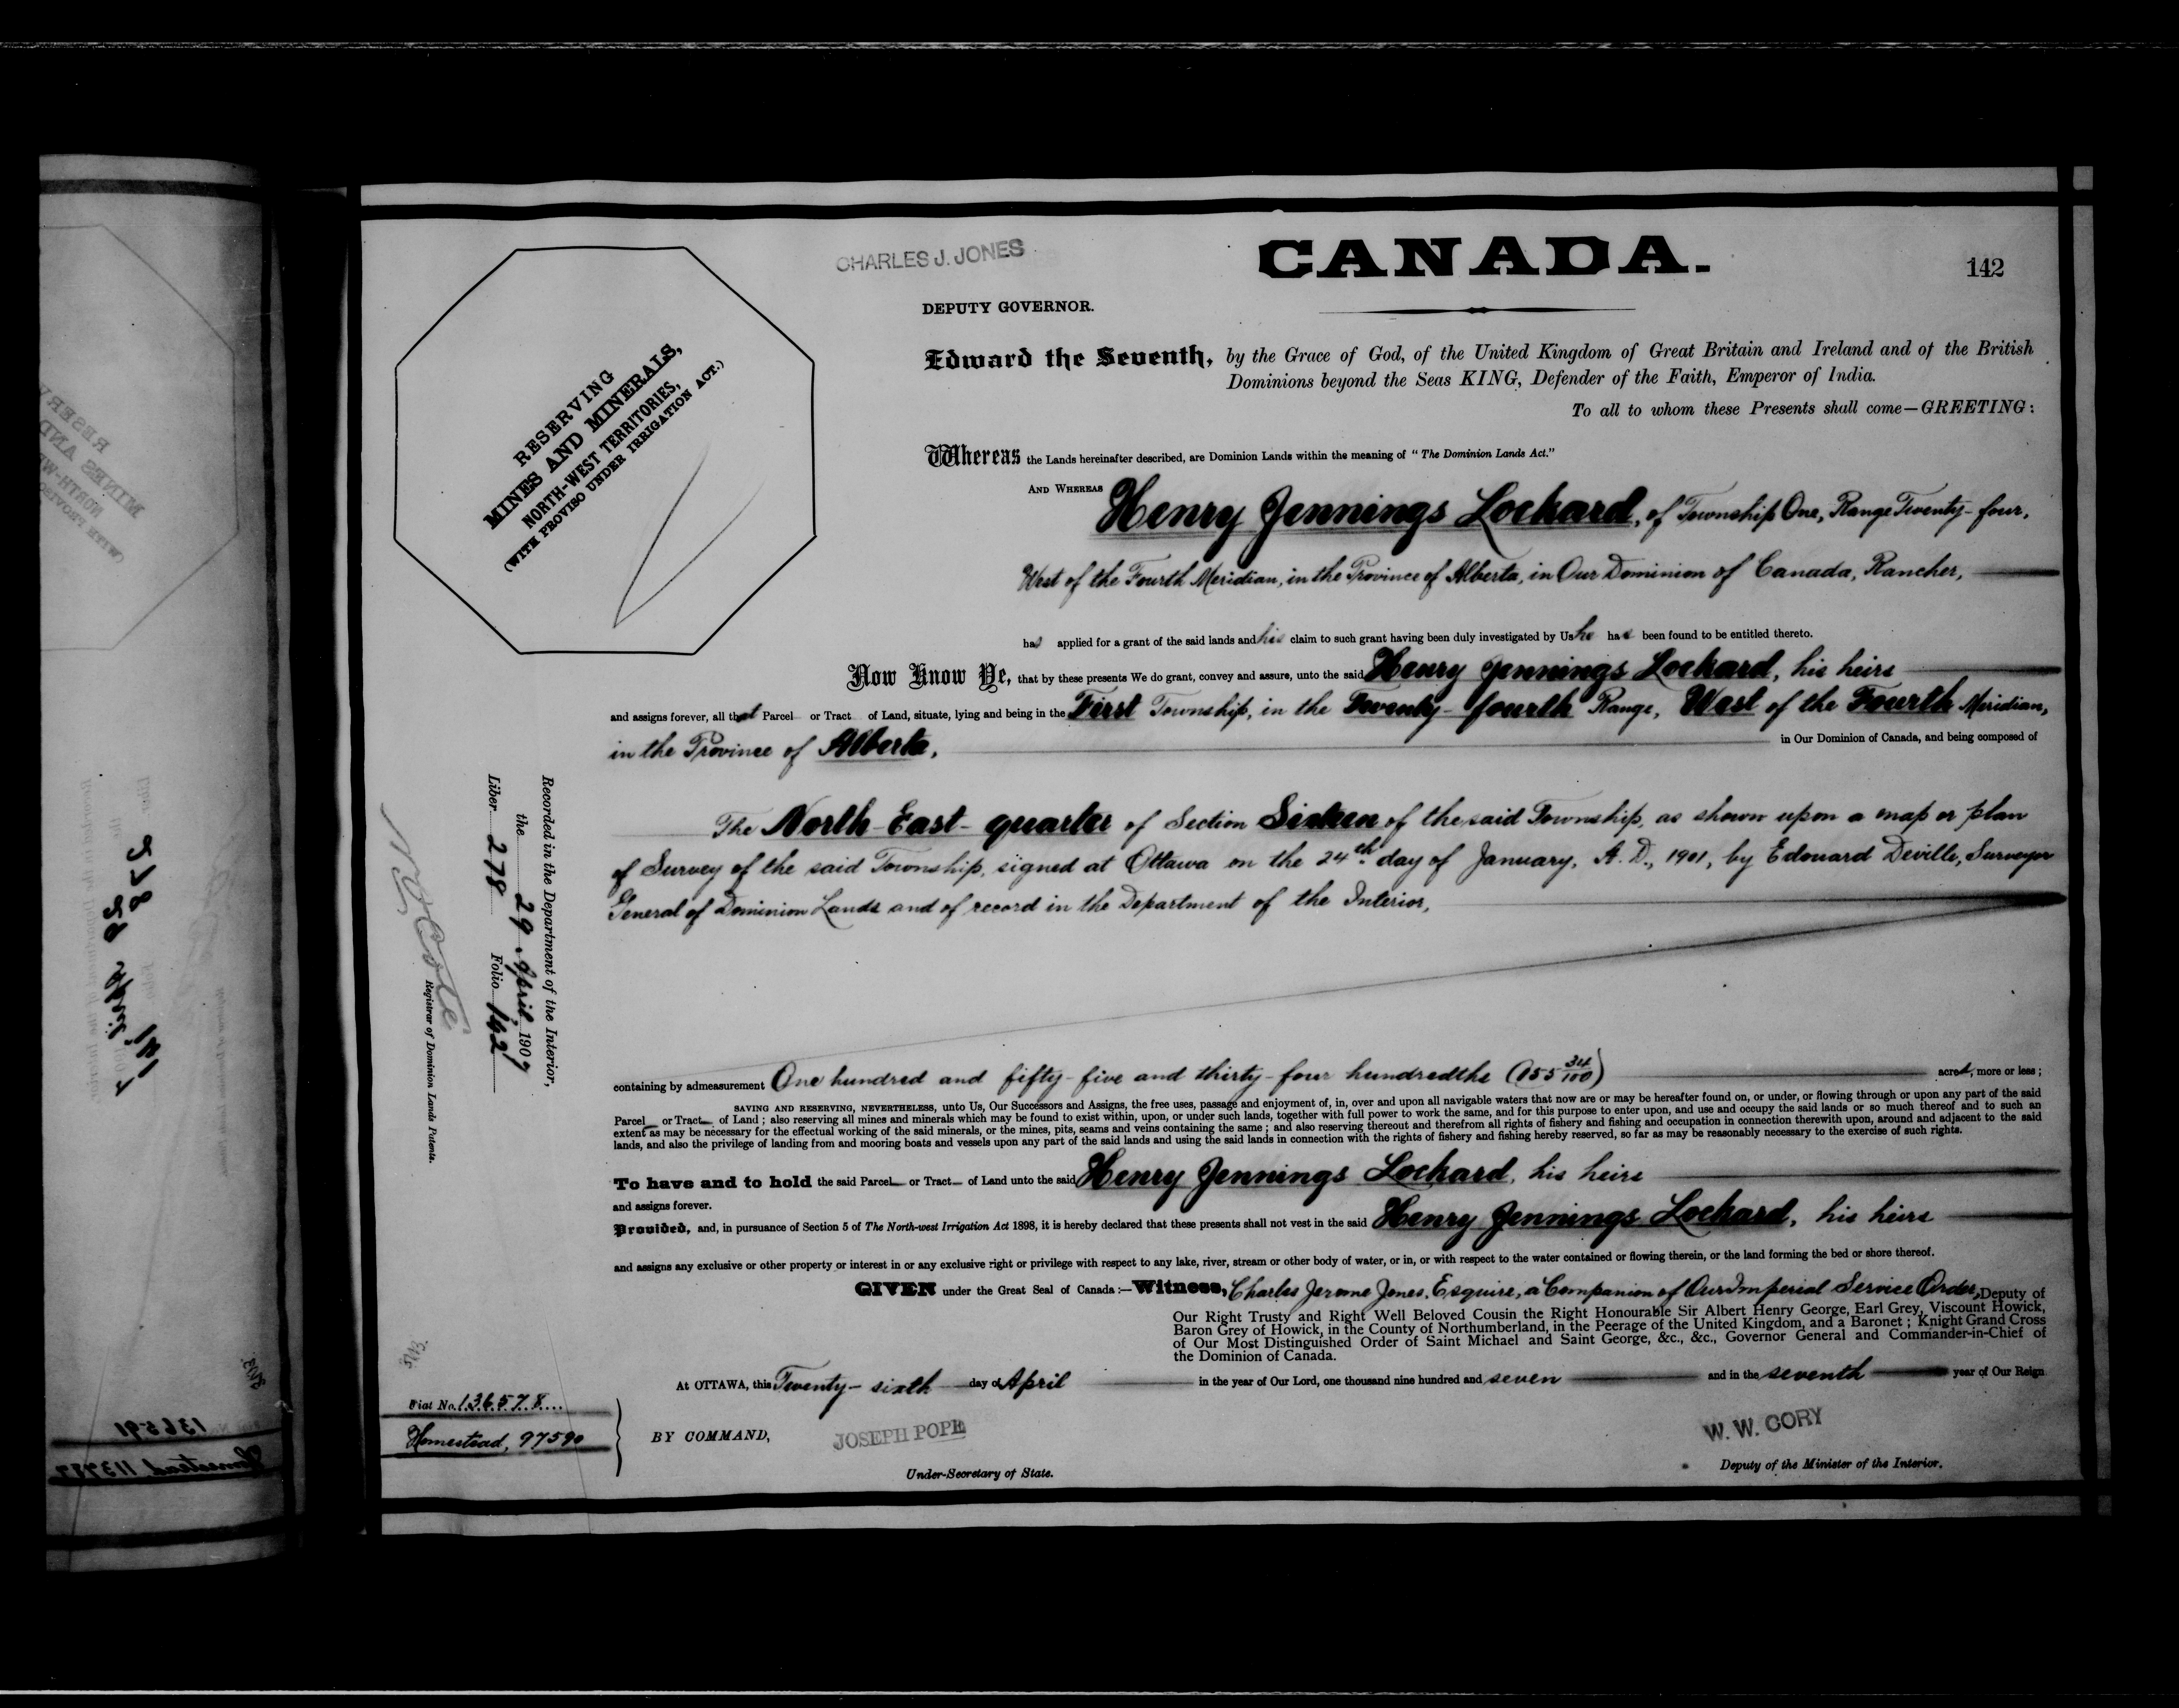 CHARLES J. JONES
CANADA.
142
DEPUTY GOVERNOR.
RESERVING
MINES AND MINERALS,
NORTH-WEST TERRITORIES,
(WITH PROVISO UNDER IRRIGATION ACT.)
Edward the Seventh, by the Grace of God, of the United Kingdom of Great Britain and Ireland and of the British
Dominions beyond the Seas KING, Defender of the Faith, Emperor of India.
To all to whom these Presents shall come—GREETING:
Whereas the Lands hereinafter described, are Dominion Lands within the meaning of "The Dominion Lands Act."
AND WHEREAS Henry Jennings Lockard, of Township One, Range Twenty-four,
West of the Fourth Meridian, in the Province of Alberta, in Our Dominion of Canada, Rancher,
has applied for a grant of the said lands and his claim to such grant having been duly investigated by Us he has been found to be entitled thereto.
Now Know Ye, that by these presents We do grant, convey and assure, unto the said Henry Jennings Lockard, his heirs
and assigns forever, all that Parcel or Tract of Land, situate, lying and being in the First Township, in the Twenty-fourth Range, West of the Fourth Meridian,
in the Province of Alberta, in Our Dominion of Canada, and being composed of
The North-East-quarter of Section Sixteen of the said Township, as shown upon a map or plan
of Survey of the said Township, signed at Ottawa on the 24th day of January, A. D., 1901, by Edouard Deville, Surveyor
General of Dominion Lands and of record in the Department of the Interior,
containing by admeasurement One hundred and fifty-five and thirty-four hundredths (155 34/100) acres, more or less;
SAVING AND RESERVING, NEVERTHELESS, unto Us, Our Successors and Assigns, the free uses, passage and enjoyment of, in, over and upon all navigable waters that now are or may be hereafter found on, or under, or flowing through or upon any part of the said
Parcel or Tract of Land; also reserving all mines and minerals which may be found to exist within, upon, or under such lands, together with full power to work the same, and for this purpose to enter upon, and use and occupy the said lands or so much thereof and to such an
extent as may be necessary for the effectual working of the said minerals, or the mines, pits, seams and veins containing the same; and also reserving thereout and therefrom all rights of fishery and fishing and occupation in connection therewith upon, around and adjacent to the said
lands, and also the privilege of landing from and mooring boats and vessels upon any part of the said lands and using the said lands in connection with the rights of fishery and fishing hereby reserved, so far as may be reasonably necessary to the exercise of such rights.
To have and to hold the said Parcel or Tract of Land unto the said Henry Jennings Lockard, his heirs
and assigns forever.
Provided, and, in pursuance of Section 5 of The North-west Irrigation Act 1898, it is hereby declared that these presents shall not vest in the said Henry Jennings Lockard, his heirs
and assigns any exclusive or other property or interest in or any exclusive right or privilege with respect to any lake, river, stream or other body of water, or in, or with respect to the water contained or flowing therein, or the land forming the bed or shore thereof.
GIVEN under the Great Seal of Canada:—Witness, Charles Jerome Jones, Esquire, a Companion of Our Imperial Service Order, Deputy of
Our Right Trusty and Right Well Beloved Cousin the Right Honourable Sir Albert Henry George, Earl Grey, Viscount Howick,
Baron Grey of Howick, in the County of Northumberland, in the Peerage of the United Kingdom, and a Baronet; Knight Grand Cross
of Our Most Distinguished Order of Saint Michael and Saint George, &c., &c., Governor General and Commander-in-Chief of
the Dominion of Canada.
At OTTAWA, this Twenty-sixth day of April in the year of Our Lord, one thousand nine hundred and seven and in the seventh year of Our Reign
BY COMMAND,
JOSEPH POPE
Under-Secretary of State.
W. W. CORY
Deputy of the Minister of the Interior.
Fiat No. 136578
Homestead, 97590
Recorded in the Department of the Interior,
the 29 April 1907
Liber 278 Folio 142
Registrar of Dominion Lands Patents.
136591
Homestead